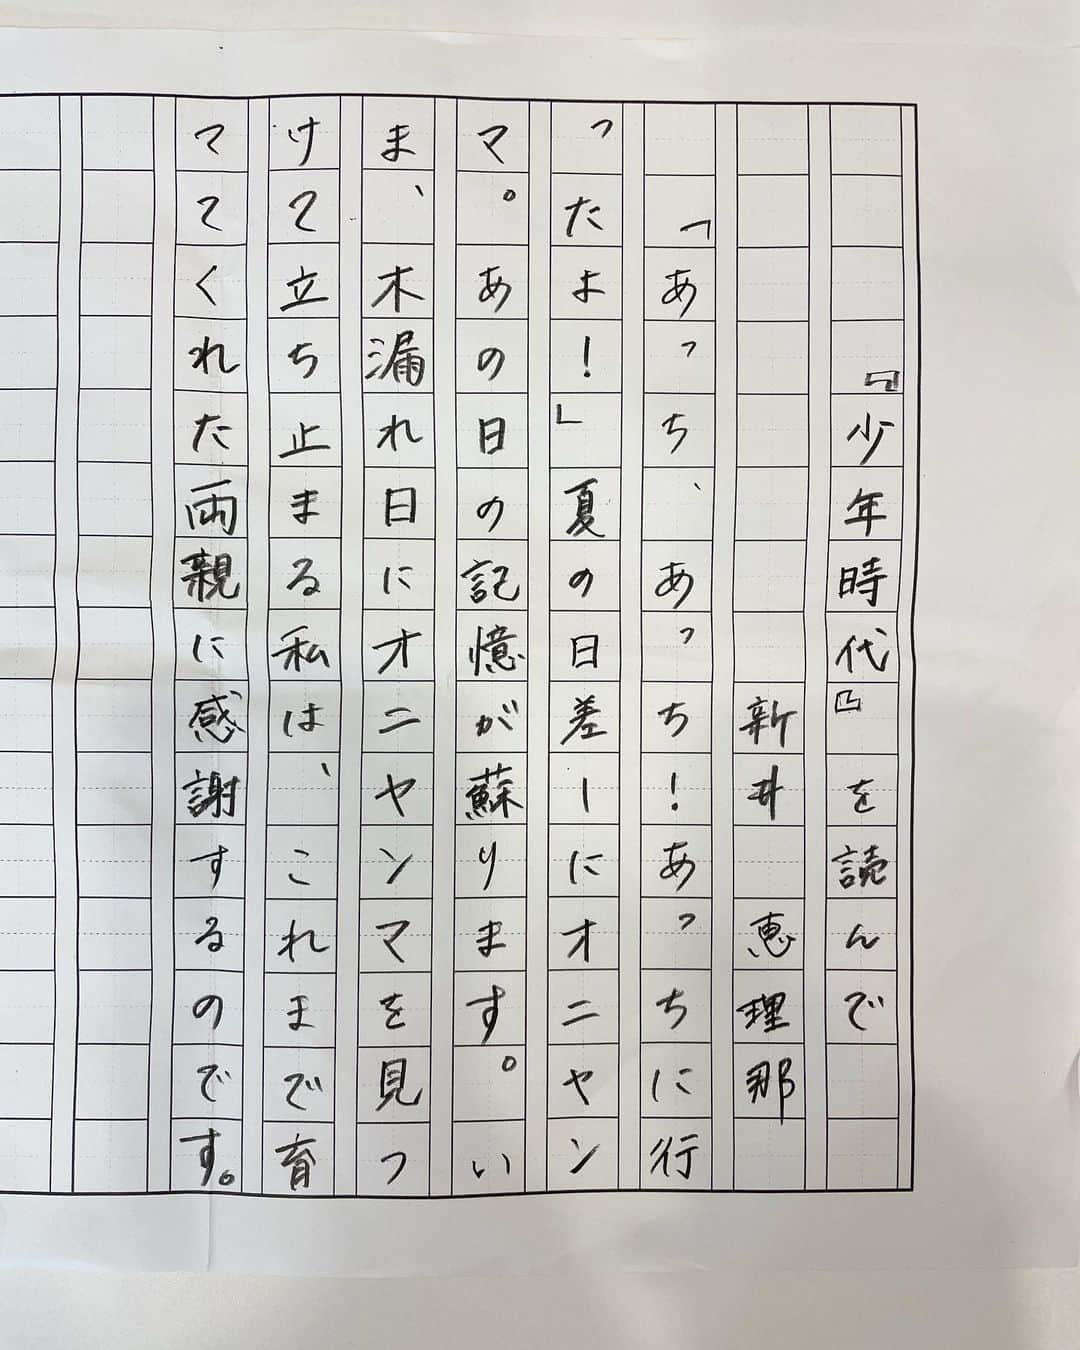 『少年時代』を読んで
新井恵理那
「あっち、あっち！あっちに行
ったよ！」夏の日差ーにオニヤン
マ。あの日の記憶が蘇ります。い
ま、木漏れ日にオニヤンマを見つ
けて立ち止まる私は、これまで育
ててくれた両親に感謝するのです。